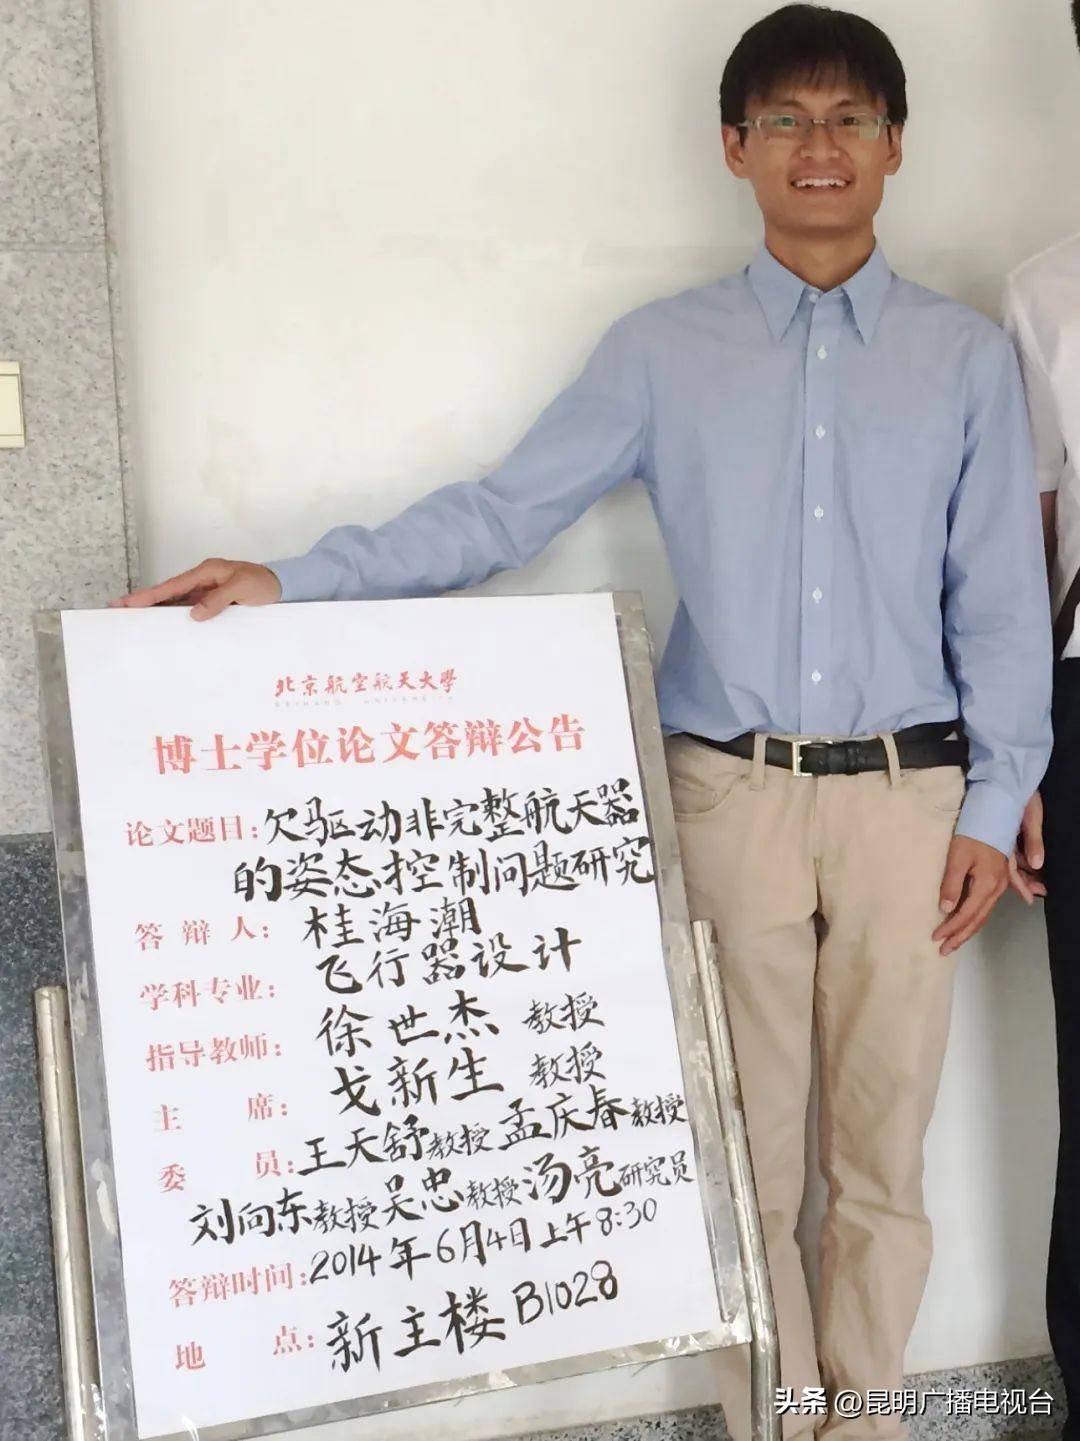 北京航空航天大學
BEIHANG UNIVERSITY
博士学位论文答辩公告
论文题目:欠驱动非完整航天器
的姿态控制问题研究
答辩人:桂海潮
学科专业:飞行器设计
指导教师:徐世杰 教授
主席:戈新生 教授
委员:王天舒教授孟庆春教授
刘向东教授吴忠教授汤亮研究员
答辩时间:2014年6月4日上午8:30
地点:新主楼B1028
头条@昆明广播电视台